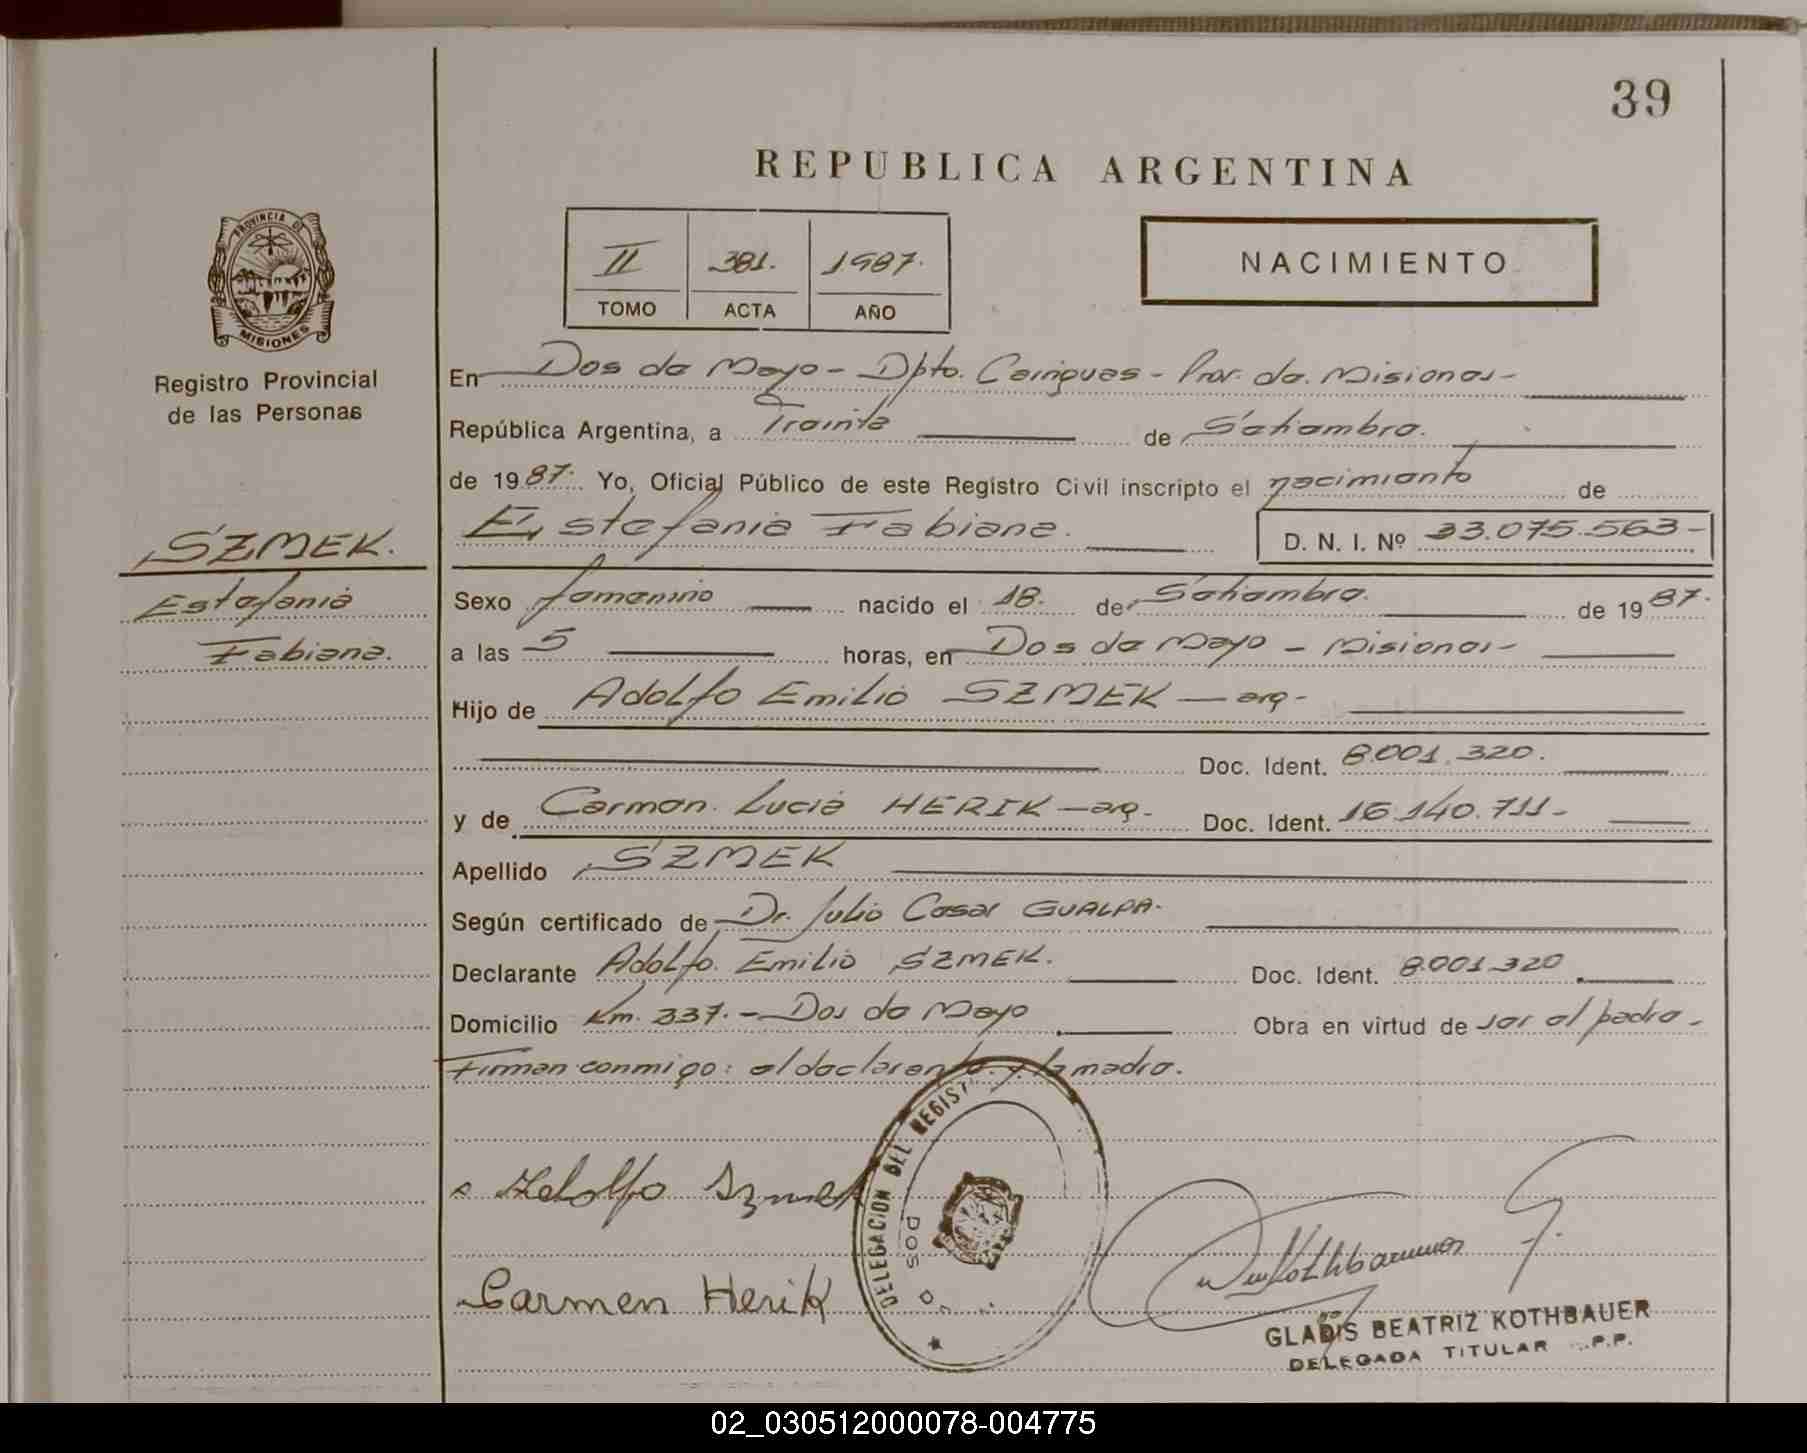 39
REPUBLICA ARGENTINA
II 381. 1987.
TOMO ACTA AÑO
NACIMIENTO
PROVINCIA DE
MISIONES
Registro Provincial
de las Personas
SZMEK.
Estefania
Fabiana.
En Dos de Mayo - Dpto. Cainguas - Prov. de. Misiones -
República Argentina, a Treinta de Setiembre.
de 1987. Yo, Oficial Público de este Registro Civil inscripto el nacimiento de
Estefania Fabiana. D. N. I. Nº 33.075.563-
Sexo femenino nacido el 18. de Setiembre. de 1987.
a las 5 horas, en Dos de Mayo - Misiones -
Hijo de Adolfo Emilio SZMEK - arg -
Doc. Ident. 8.001.320.
y de Carmen. Lucia HERIK - arg. Doc. Ident. 16.140.711-
Apellido SZMEK
Según certificado de Dr. Julio Cesar GUALPA.
Declarante Adolfo. Emilio SZMEK. Doc. Ident. 8.001.320.
Domicilio Km. 237. - Dos de Mayo Obra en virtud de ser el padre -
Firman conmigo: el declarante y la madre.
Adolfo Szmek
Carmen Herik
DELEGACION DEL REGIST
DOS D
GLADIS BEATRIZ KOTHBAUER
DELEGADA TITULAR P.P.
02_030512000078-004775